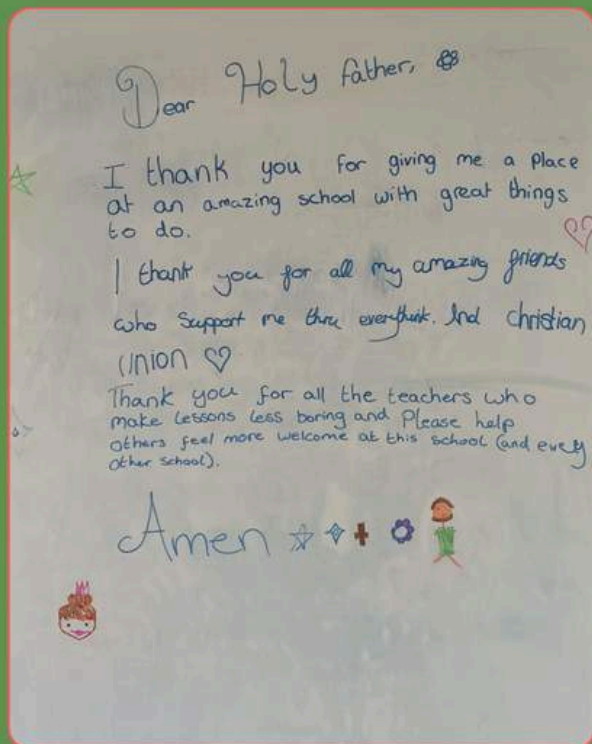 Dear Holy father,
I thank you for giving me a place
at an amazing school with great things
to do.
I thank you for all my amazing friends
who Support me thru everythink. And christian
Union
Thank you for all the teachers who
make lessons less boring and Please help
others feel more welcome at this school (and every
other school).
Amen